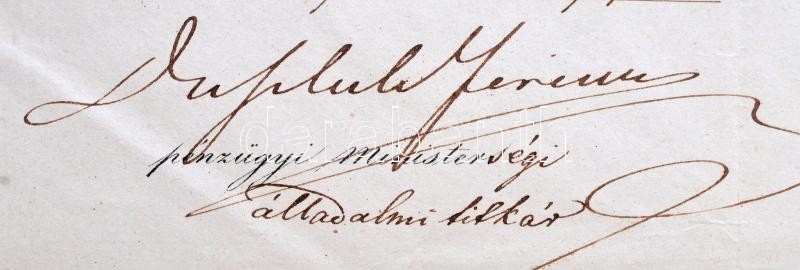 Duschek Ferencz
pénzügyi Ministerségi
álladalmi titkár
darabanth